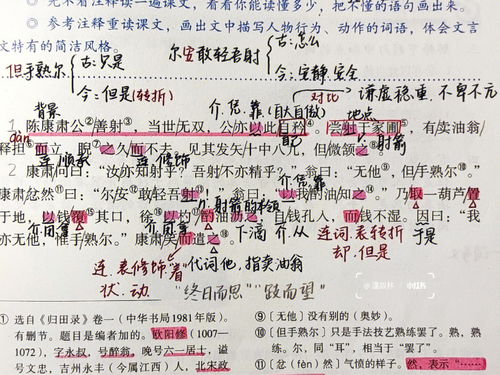 ◎ 先不看注释读一遍课文，看看你能读懂多少，把不懂的语句画出来。
◎ 参考注释重读课文，画出文中描写人物行为、动作的词语，体会文言
文特有的简洁风格。
古：怎么
尔安敢轻吾射
今：安静，安全
古：只是
但手熟尔
今：但是(转折)
对比
谦虚稳重，不卑不亢
背景
介.凭，靠
(自大自傲)
地点
1 陈康肃公②善射③，当世无双，公亦以此自矜④。尝射于家圃⑤，有卖油翁
dàn
自己
射箭
释担⑥而立，睨⑦之久而不去。见其发矢十中八九，但微颔之⑧。
连.顺承
连.修饰
介.凭.靠
2 康肃问曰：“汝亦知射乎？吾射不亦精乎？”翁曰：“无他⑨，但手熟尔⑩。”
康肃忿然⑪曰：“尔安⑫敢轻吾射⑬！”翁曰：“以我酌油知之⑭。”乃取一葫芦置
介
射箭的本领
于地，以钱覆⑮其口，徐⑯以杓⑰酌油沥之，自钱孔入，而钱不湿。因曰：“我
介.用.拿
介.用.拿
下滴
介.从
连词.表转折
于是
却.但是
亦无他，惟手熟尔。”康肃笑而遣之⑱。
连.表修饰“着”
代词他，指卖油翁
状.动
“终日而思”“跂而望”
① 选自《归田录》卷一（中华书局1981年版）。
有删节。题目是编者加的。欧阳修（1007—
1072），字永叔，号醉翁，晚号六一居士，谥
号文忠，吉州永丰（今属江西）人，北宋政
⑨〔无他〕没有别的（奥妙）。
⑩〔但手熟尔〕只是手法技艺熟练罢了。熟，熟
练。尔，同“耳”，相当于“罢了”。
⑪〔忿（fèn）然〕气愤的样子。然，表示“……
小红书